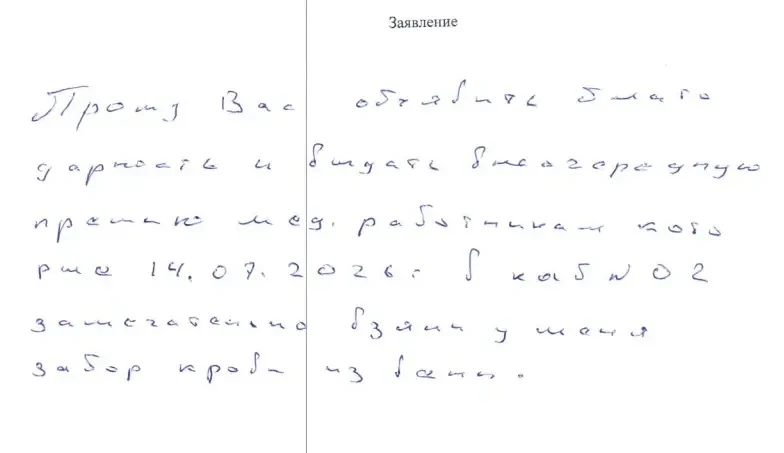 Заявление
Прошу Вас объявить благо
дарность и выдать внеочередную
премию мед. работникам кото
рые 14.07.2026г. в каб N 02
замечательно взяли у меня
забор крови из вены.